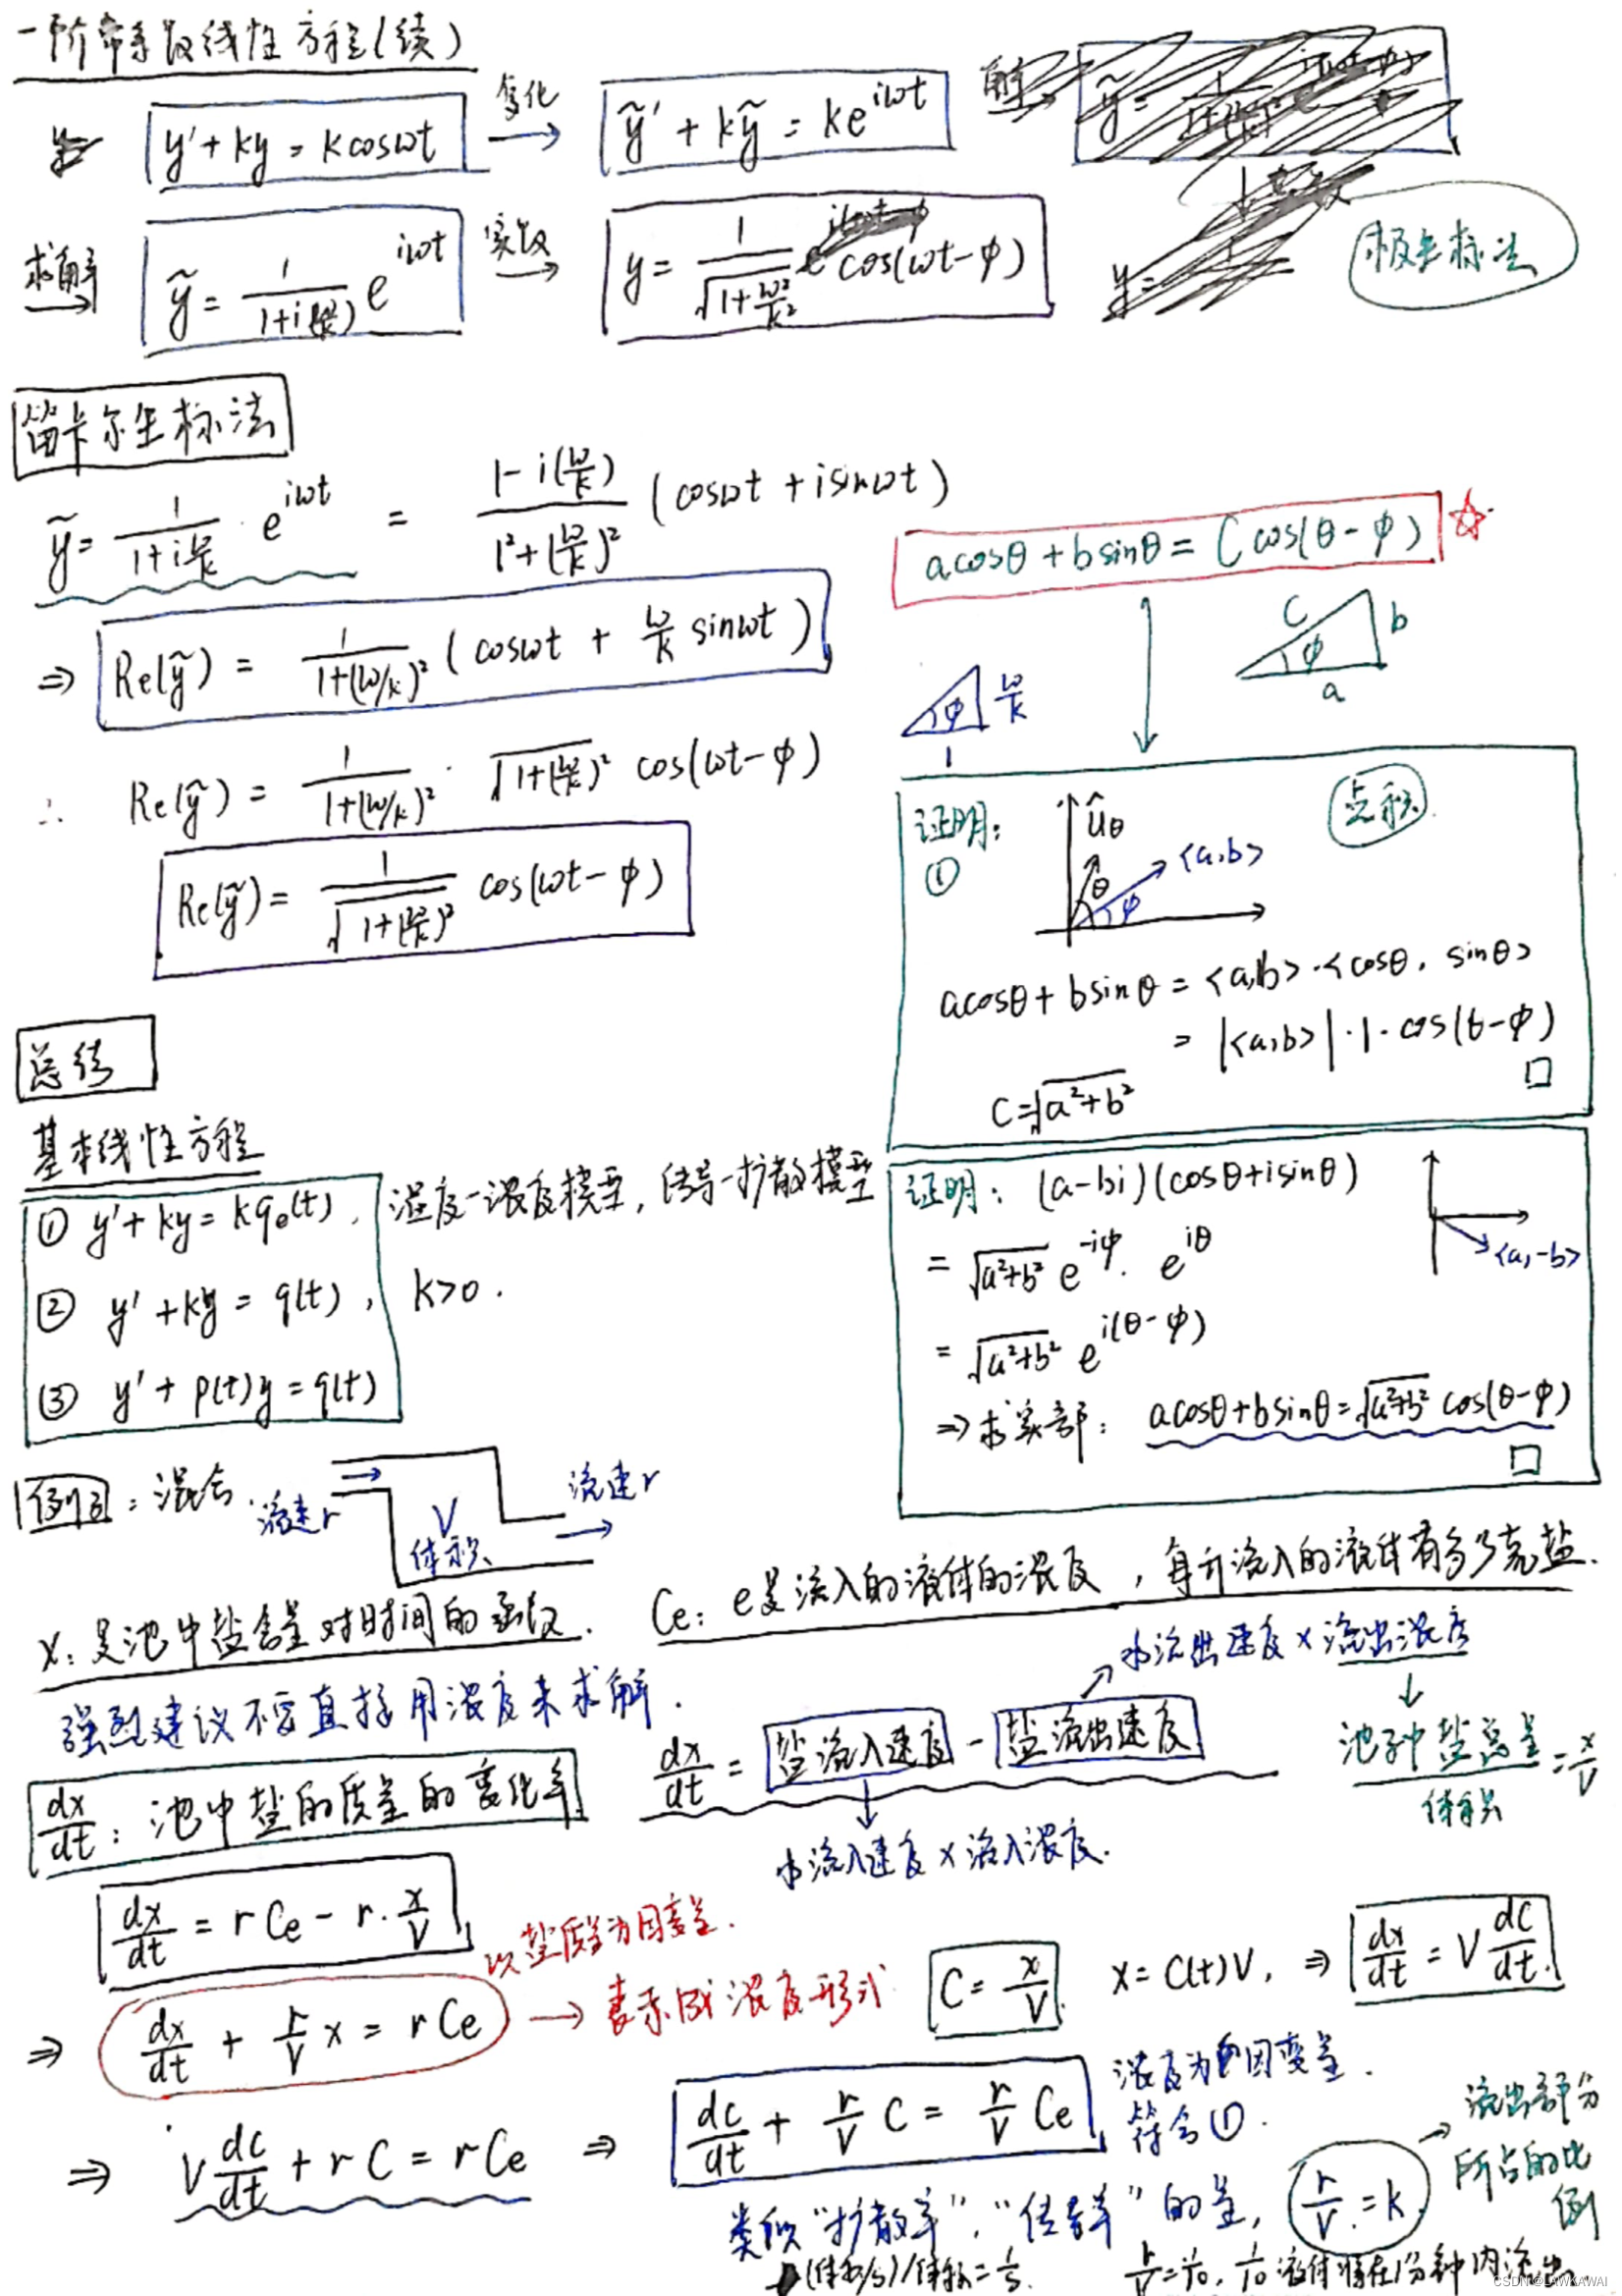 一阶常系数线性方程(续)
y'+ky = kcosωt
复化
ỹ' + kỹ = ke^{iωt}
求解
ỹ = \frac{1}{1+i(\frac{ω}{k})} e^{iωt}
实数
y = \frac{1}{\sqrt{1+\frac{ω²}{k²}}} cos(ωt-φ)
极坐标法
笛卡尔坐标法
ỹ = \frac{1}{1+i\frac{ω}{k}} · e^{iωt} = \frac{1-i(\frac{ω}{k})}{1²+(\frac{ω}{k})²} (cosωt + isinωt)
⇒ Re(ỹ) = \frac{1}{1+(ω/k)²} (cosωt + \frac{ω}{k} sinωt)
∴ Re(ỹ) = \frac{1}{1+(ω/k)²} · \sqrt{1+(\frac{ω}{k})²} cos(ωt-φ)
Re(ỹ) = \frac{1}{\sqrt{1+(\frac{ω}{k})²}} cos(ωt-φ)
acosθ + bsinθ = C cos(θ-φ) ☆
C φ b
a
φ \frac{ω}{k}
1
证明: 点积
①
û_θ
<a,b>
θ φ
acosθ + bsinθ = <a,b>·<cosθ, sinθ>
= |<a,b>|·1·cos(θ-φ)
□
C=\sqrt{a²+b²}
证明: (a-bi)(cosθ+isinθ)
= \sqrt{a²+b²} e^{-iφ} · e^{iθ}
<a,-b>
= \sqrt{a²+b²} e^{i(θ-φ)}
⇒ 求实部: acosθ+bsinθ=\sqrt{a²+b²} cos(θ-φ)
□
总结
基本线性方程
① y'+ky = kq_e(t), 温度-浓度模型, 传导-扩散模型
② y'+ky = q(t), k>0.
③ y'+p(t)y = q(t)
例子: 混合
流速r
V
体积
流速r
x: 是池中盐含量对时间的函数.
Ce: e是流入的液体的浓度, 每升流入的液体有多少克盐.
强烈建议不要直接用浓度来求解.
\frac{dx}{dt}: 池中盐的质量的变化率
\frac{dx}{dt} = 盐流入速度 - 盐流出速度
水流出速度×流出浓度
\frac{池子中盐总量}{体积} = \frac{x}{V}
水流入速度×流入浓度.
\frac{dx}{dt} = rCe - r·\frac{x}{V}
以盐质量为因变量.
⇒ \frac{dx}{dt} + \frac{r}{V}x = rCe → 表示成浓度形式
C = \frac{x}{V}. x = C(t)V, ⇒ \frac{dx}{dt} = V\frac{dC}{dt}.
⇒ V\frac{dC}{dt} + rC = rCe ⇒ \frac{dC}{dt} + \frac{r}{V}C = \frac{r}{V}Ce
浓度为因变量.
符合①.
类似“扩散率”, “传导率”的量, \frac{r}{V} = k.
流出部分
所占的比
例
(体积/s)/体积 = \frac{1}{s}.
\frac{r}{V}=\frac{1}{10}, \frac{1}{10}液体将在1分钟内流出
CSDN @LAWKAWAI